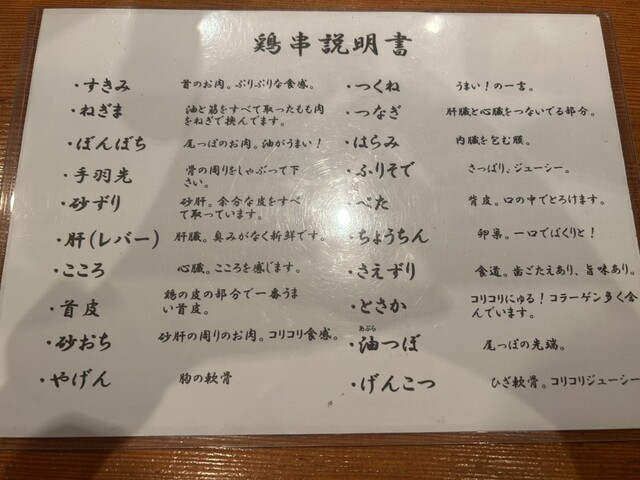 鶏串説明書
・すきみ 首のお肉。ぷりぷりな食感。
・ねぎま 油と筋をすべて取ったもも肉
をねぎで挟んでます。
・ぼんぼち 尾っぽのお肉。油がうまい!
・手羽先 骨の周りをしゃぶって下
さい。
・砂ずり 砂肝。余分な皮をすべ
て取っています。
・肝(レバー) 肝臓。臭みがなく新鮮です。
・こころ 心臓。こころを感じます。
・首皮 鶏の皮の部分で一番うま
い首皮。
・砂おち 砂肝の周りのお肉。コリコリ食感。
・やげん 胸の軟骨
・つくね うまい!の一言。
・つなぎ 肝臓と心臓をつないでる部分。
・はらみ 内臓を包む膜。
・ふりそで さっぱり、ジューシー。
・べた 背皮。口の中でとろけます。
・ちょうちん 卵巣。一口でぱくりと!
・さえずり 食道。歯ごたえあり、旨味あり。
・とさか コリコリにゅる!コラーゲン多く含
んでいます。
あぶら
・油つぼ 尾っぽの先端。
・げんこつ ひざ軟骨。コリコリジューシー